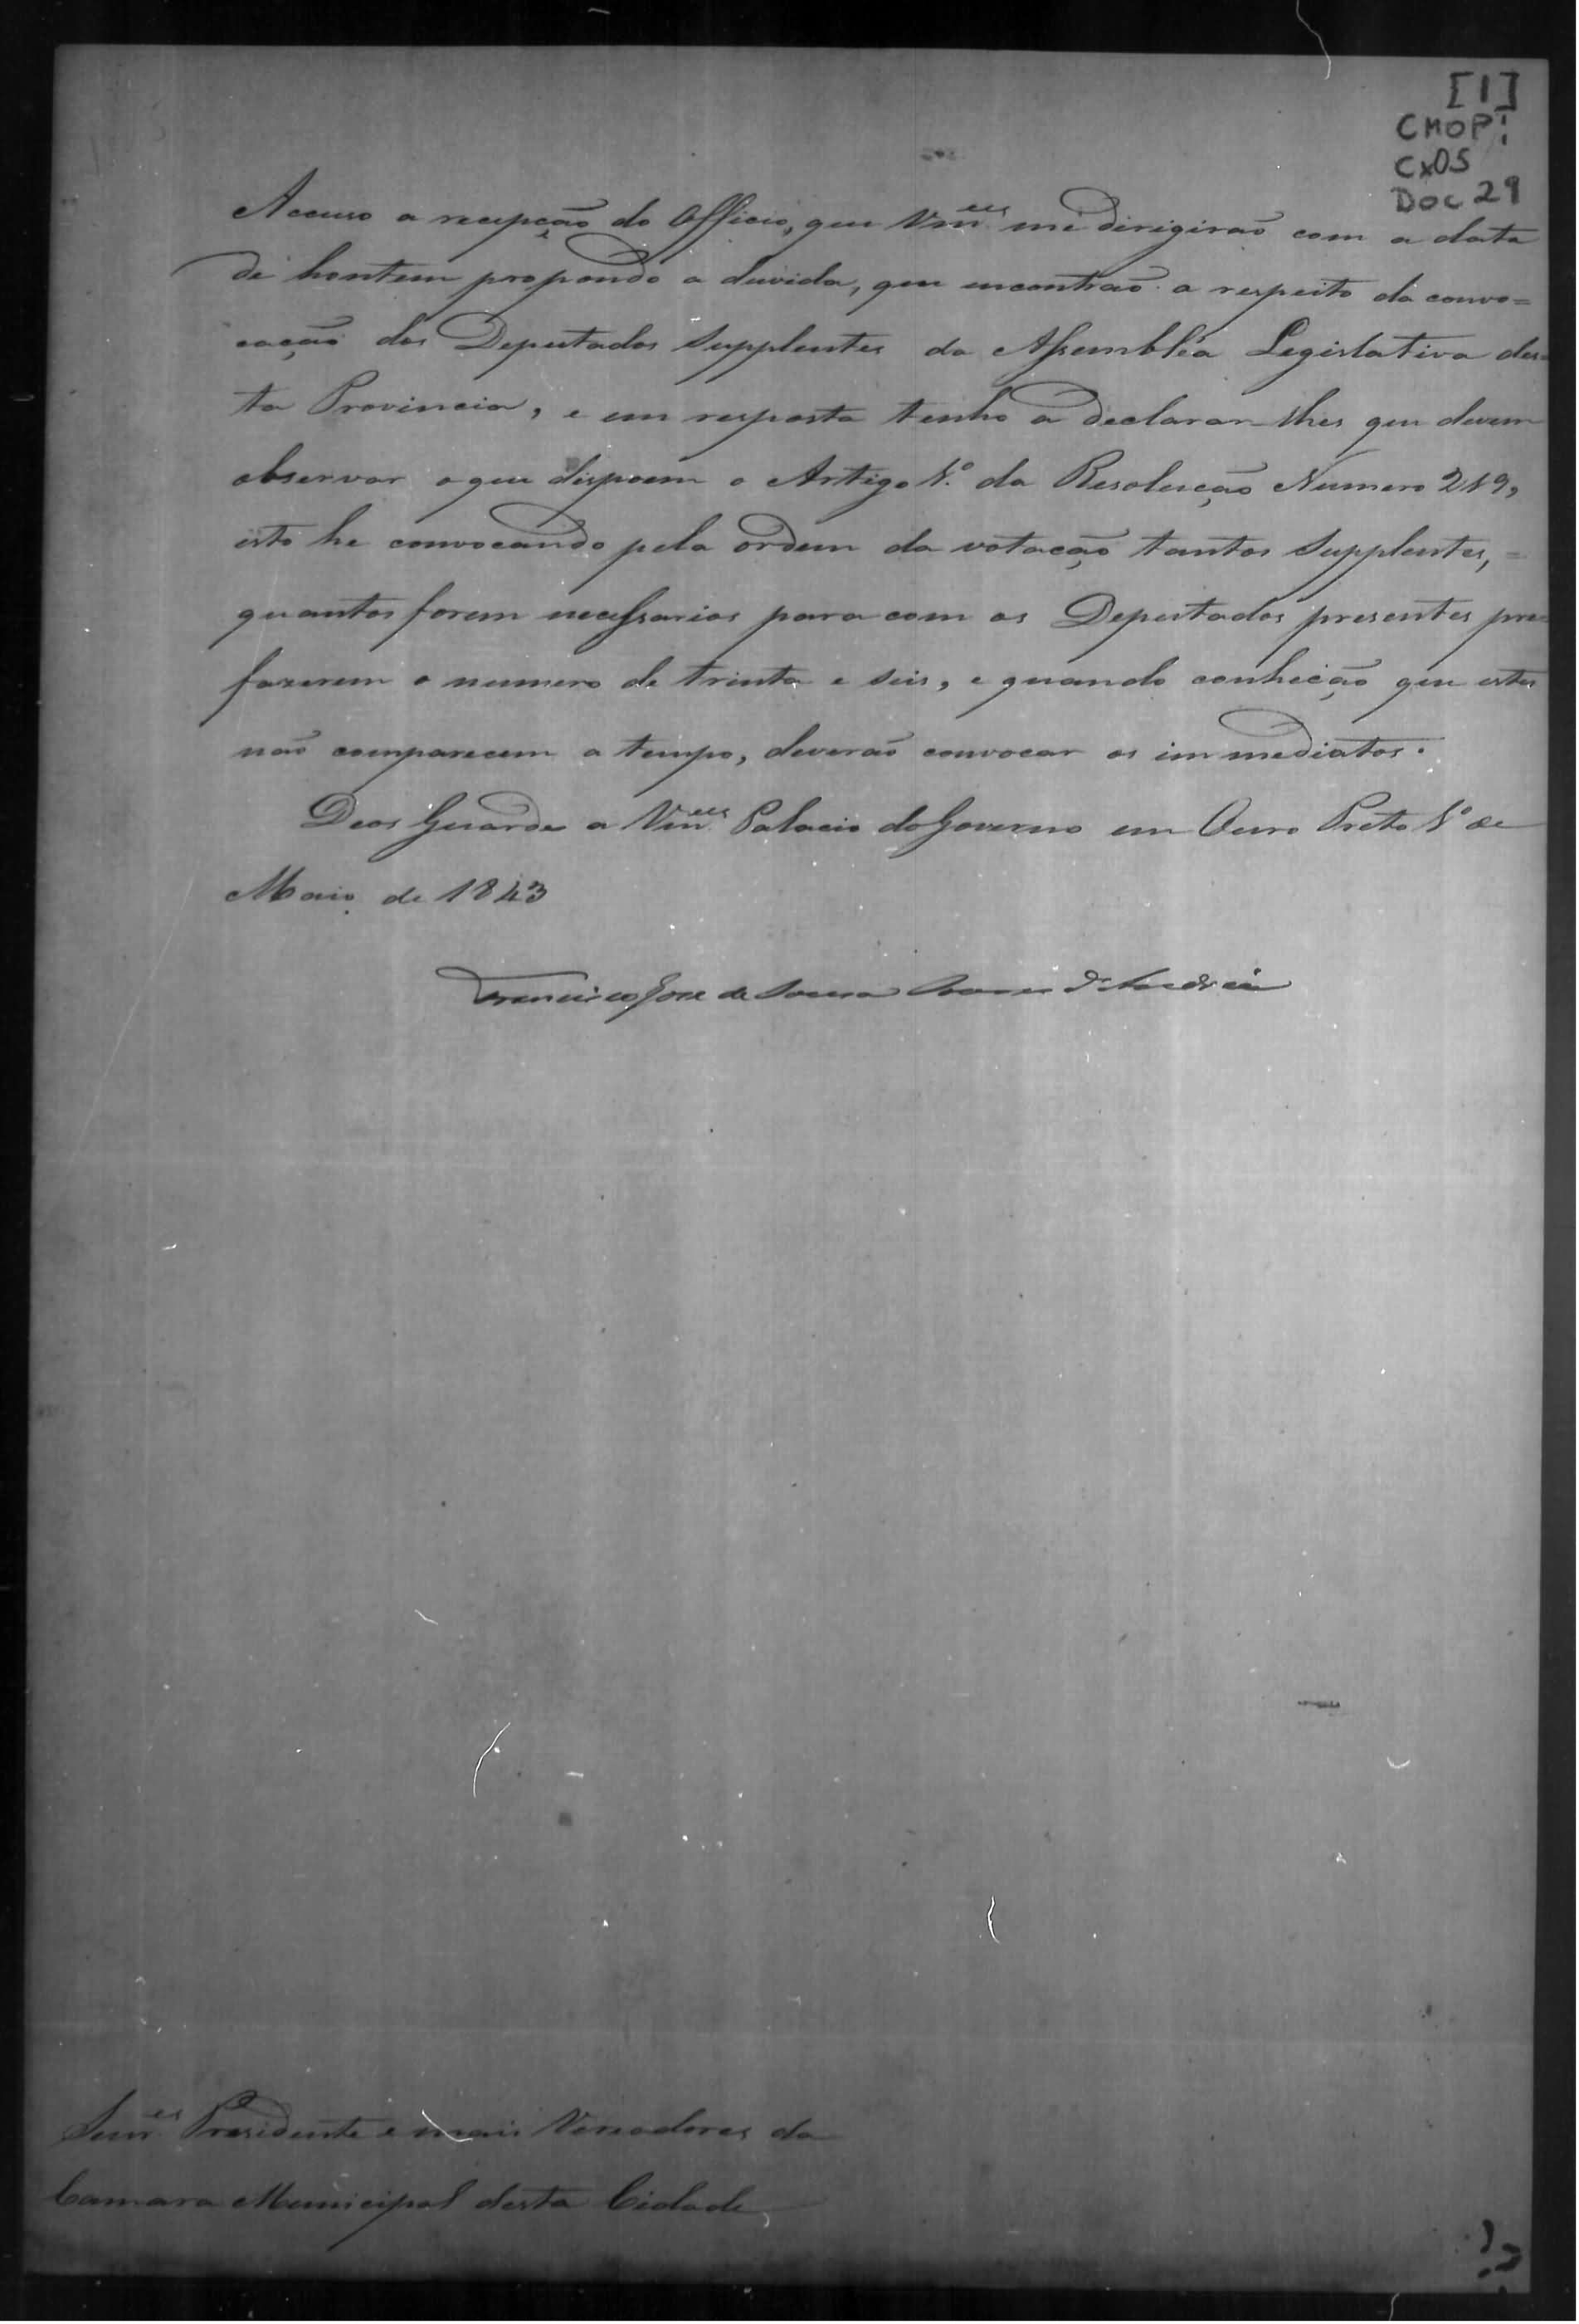 [1]
CMOP:
Cx05
Doc 29
Accuso a recepção do Officio, que Vm.ces me dirigirão com a data
de hontem propondo a duvida, que encontrão a respeito da convo=
cação dos Deputados Supplentes da Assembléa Legislativa des=
ta Provincia, e em resposta tenho a declarar-lhes que devem
observar o que dispoem o Artigo 1.º da Resolução Numero 219,
isto he convocando pela ordem da votação tantos Supplentes, =
quantos forem necessarios para com os Deputados presentes pre=
fazerem o numero de trinta e seis, e quando conheção que estes
não comparecem a tempo, deverão convocar os immediatos.
Deos Guarde a Vm.ces Palacio do Governo em Ouro Preto 1.º de
Maio de 1843
Francisco Jose de Souza Soares d'Andréa
Senr.es Presidente e mais Vereadores da
Camara Municipal desta Cidade,